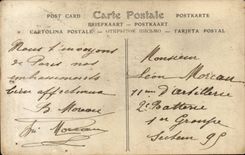 POST CARD Carte Postale POSTKARTE
BRIEFKAART
CARTOLINA POSTALE ОТКРЫТОЕ ПИСЬМО TARJETA POSTAL
Nous t'envoyons
de Paris nos
bien affectueux
B. Moreau
Moreau
Monsieur
Léon Moreau
11me d'artillerie
2e Batterie
1er Groupe
Secteur 95